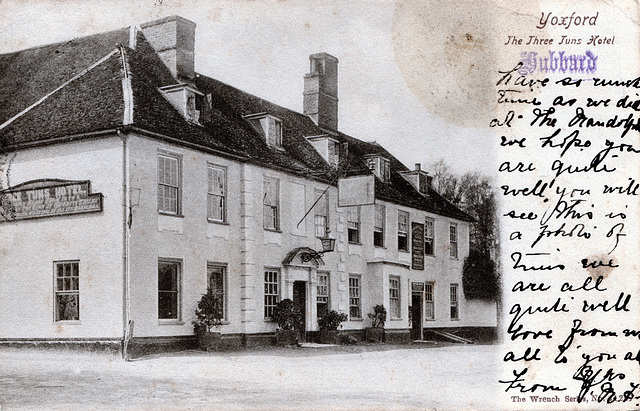 Yoxford
The Three Tuns Hotel
Hubbard
have so much
time as we did
at The Randolph
we hope you
are quite
well you will
see this is
a photo of
Tuns we
are all
quite well
love from us
all to you all
From
The Wrench Series, No
TUNS HOTEL